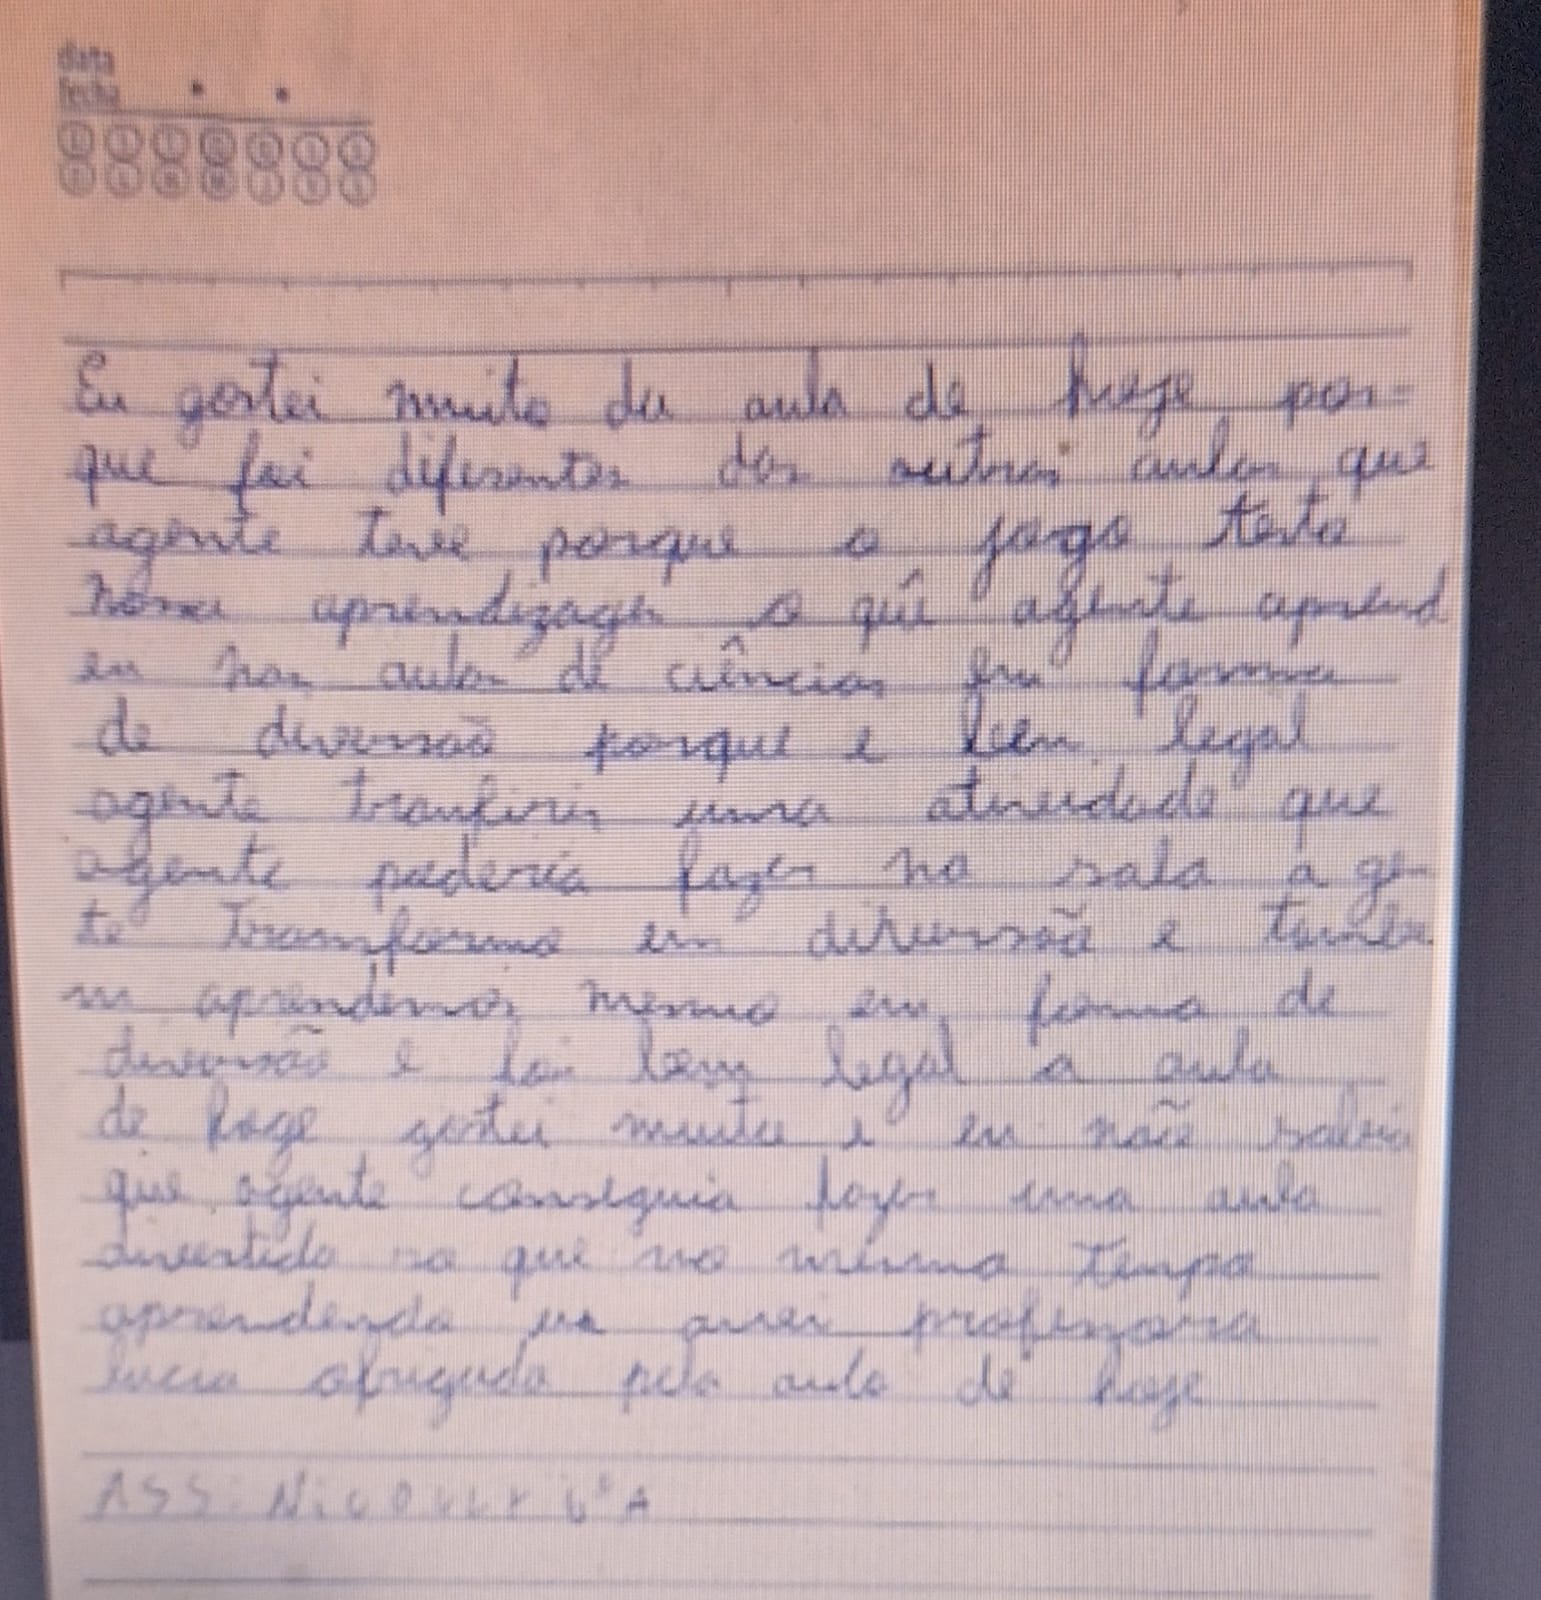 data
fecha
Eu gostei muito da aula de hoje por-
que foi diferentes das outras aulas que
agente teve porque o jogo testa
nossa aprendizagem o que agente aprend
eu nas aulas de ciências em forma
de diversão porque e bem legal
agente tranfirir uma atividade que
agente poderia fazer na sala a gen
te transforma em diversão e també
m aprendemos mesmo em forma de
diversão e foi bem legal a aula
de hoje gostei muito e eu não sabia
que agente conseguia fazer uma aula
divertida so que no mesmo tempo
aprendendo professora
lucia obrigada pela aula de hoje
ASS: Nicolly 6°A